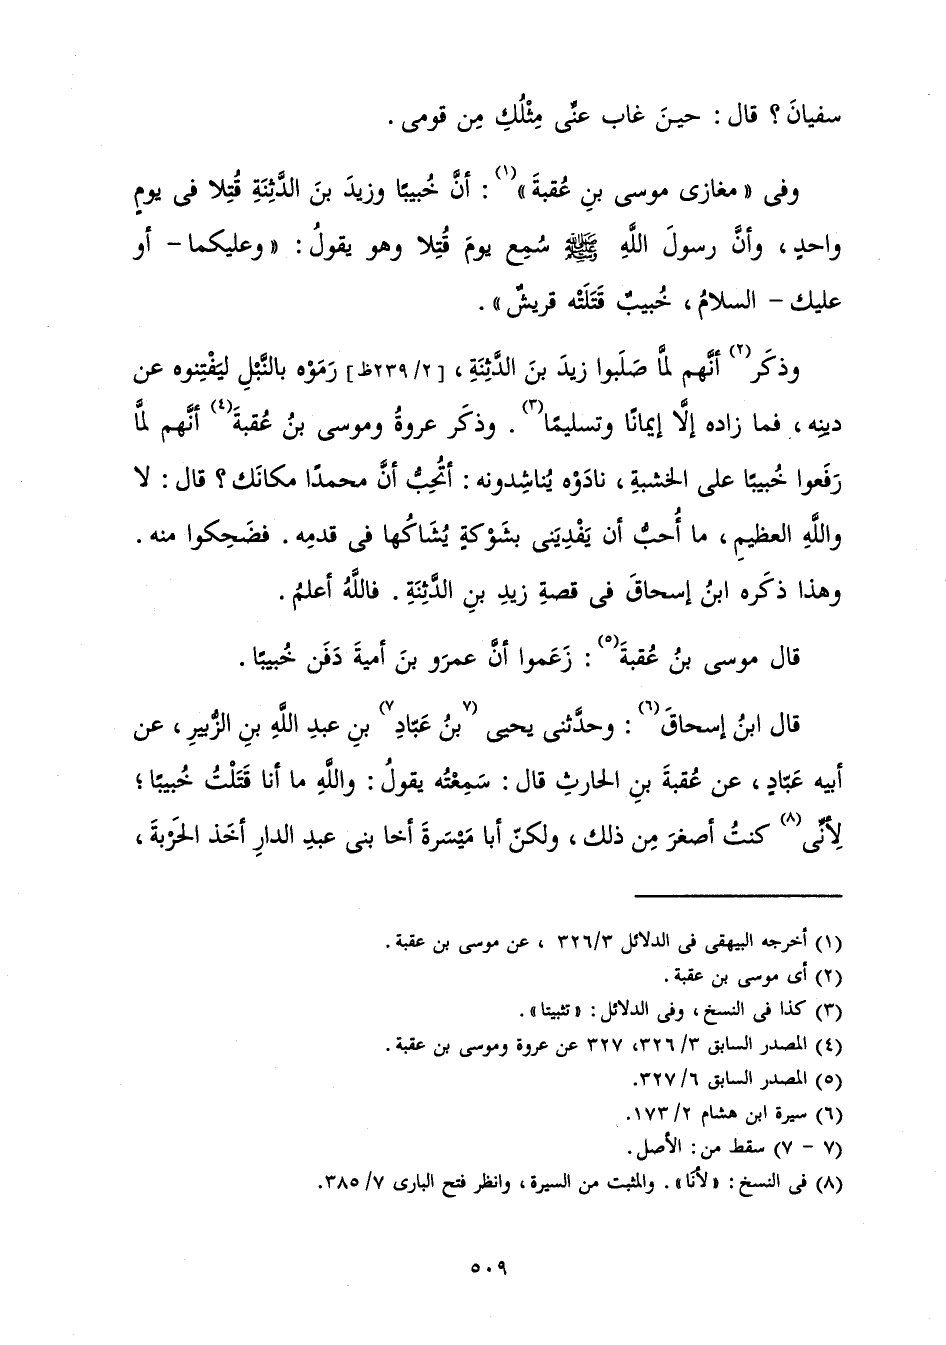 سفيانَ ؟ قال : حينَ غاب عنِّى مِثْلُكِ مِن قومى .
وفى « مغازى موسى بنِ عُقبةَ »(١) : أنَّ خُبيبًا وزيدَ بنَ الدَّثِنَةِ قُتِلا فى يومٍ
واحدٍ ، وأنَّ رسولَ اللَّهِ ﷺ سُمِع يومَ قُتِلا وهو يقولُ : « وعليكما - أو
عليك - السلامُ ، خُبيبٌ قَتَلَتْه قريشٌ » .
وذكَر(٢) أنَّهم لمَّا صَلَبوا زيدَ بنَ الدَّثِنَةِ ، [ ٢٣٩/٢ظ ] رَمَوْه بالنَّبْلِ ليَفْتِنوه عن
دينِه ، فما زاده إلَّا إيمانًا وتسليمًا(٣) . وذكَر عروةُ وموسى بنُ عُقبةَ(٤) أنَّهم لمَّا
رَفَعوا خُبيبًا على الخشبةِ ، نادَوْه يُناشِدونه : أتُحِبُّ أنَّ محمدًا مكانَك ؟ قال : لا
واللَّهِ العظيمِ ، ما أُحبُّ أن يَفْدِيَنى بشَوْكةٍ يُشَاكُها فى قدمِه . فضَحِكوا منه .
وهذا ذكَره ابنُ إسحاقَ فى قصةِ زيدِ بنِ الدَّثِنَةِ . فاللَّهُ أعلمُ .
قال موسى بنُ عُقبةَ(٥) : زَعَموا أنَّ عمرَو بنَ أميةَ دَفَن خُبيبًا .
قال ابنُ إسحاقَ(٦) : وحدَّثنى يحيى (٧بنُ عَبَّادِ٧) بنِ عبدِ اللَّهِ بنِ الزُّبيرِ ، عن
أبيه عَبّادٍ ، عن عُقبةَ بنِ الحارثِ قال : سَمِعْتُه يقولُ : واللَّهِ ما أنا قَتَلْتُ خُبيبًا ؛
لِأنِّى(٨) كنتُ أصغرَ مِن ذلك ، ولكنّ أبا مَيْسَرةَ أخا بنى عبدِ الدارِ أخَذ الحَرْبةَ ،
(١) أخرجه البيهقى فى الدلائل ٣٢٦/٣ ، عن موسى بن عقبة .
(٢) أى موسى بن عقبة .
(٣) كذا فى النسخ ، وفى الدلائل : « تثبيتا » .
(٤) المصدر السابق ٣/ ٣٢٦، ٣٢٧ عن عروة وموسى بن عقبة .
(٥) المصدر السابق ٦/ ٣٢٧.
(٦) سيرة ابن هشام ٢/ ١٧٣.
(٧ - ٧) سقط من : الأصل .
(٨) فى النسخ : « لأنا » . والمثبت من السيرة ، وانظر فتح البارى ٧/ ٣٨٥.
٥٠٩